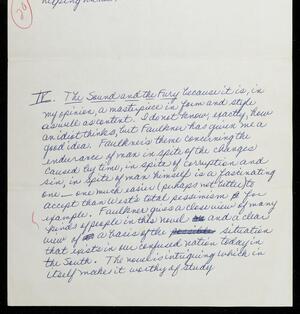 20
IV. The Sound and the Fury because it is, in
my opinion, a masterpiece in form and style
as well as content. I do not know, exactly, how
an idiot thinks, but Faulkner has given me a
good idea. Faulkner's theme concerning the
endurance of man in spite of the changes
caused by time, in spite of corruption and
sin, in spite of man himself is a fascinating
one — one much easier (perhaps not better) to
accept than West's total pessimism for
example. Faulkner gives a close view of many
kinds of people in this novel and a clear
view of a basis of the situation
that exists in our confused nation today in
the South. The novel is intriguing which in
itself make it worthy of study